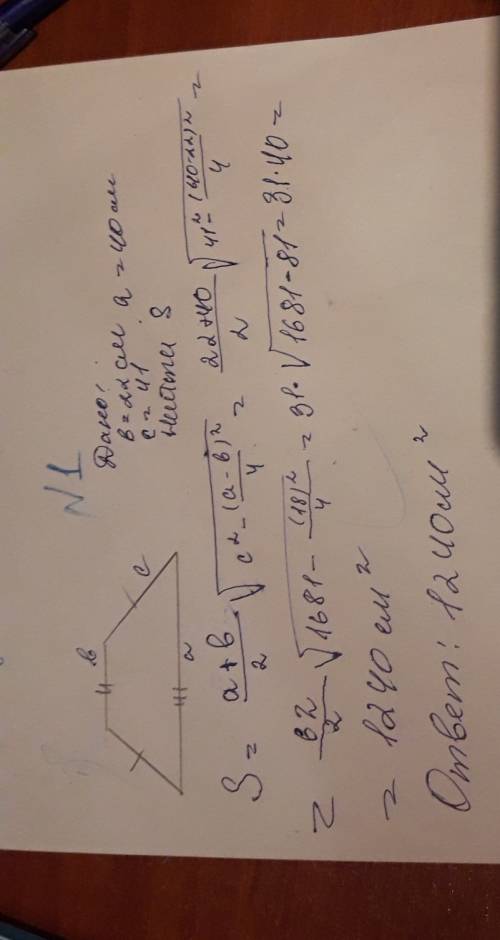 №1
Дано:
в = 22 см а = 40 см
с = 41
Найти S
в
с
а
S = (а + в)/2 √(с² - (а - в)²/4) = (22 + 40)/2 √(41² - (40-22)²/4) =
= 62/2 √(1681 - (18)²/4) = 31 · √(1681 - 81) = 31 · 40 =
= 1240 см²
Ответ: 1240 см²